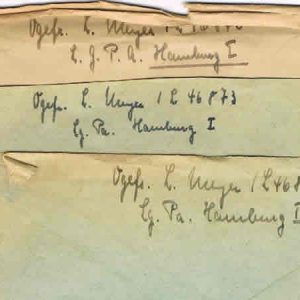 Ogefr. L. Meyer / L 46873
L. G. P. A. Hamburg I
Ogefr. L. Meyer / L 46873
Lg. Pa. Hamburg I
Ogefr. L. Meyer / L 468
Lg. Pa. Hamburg I